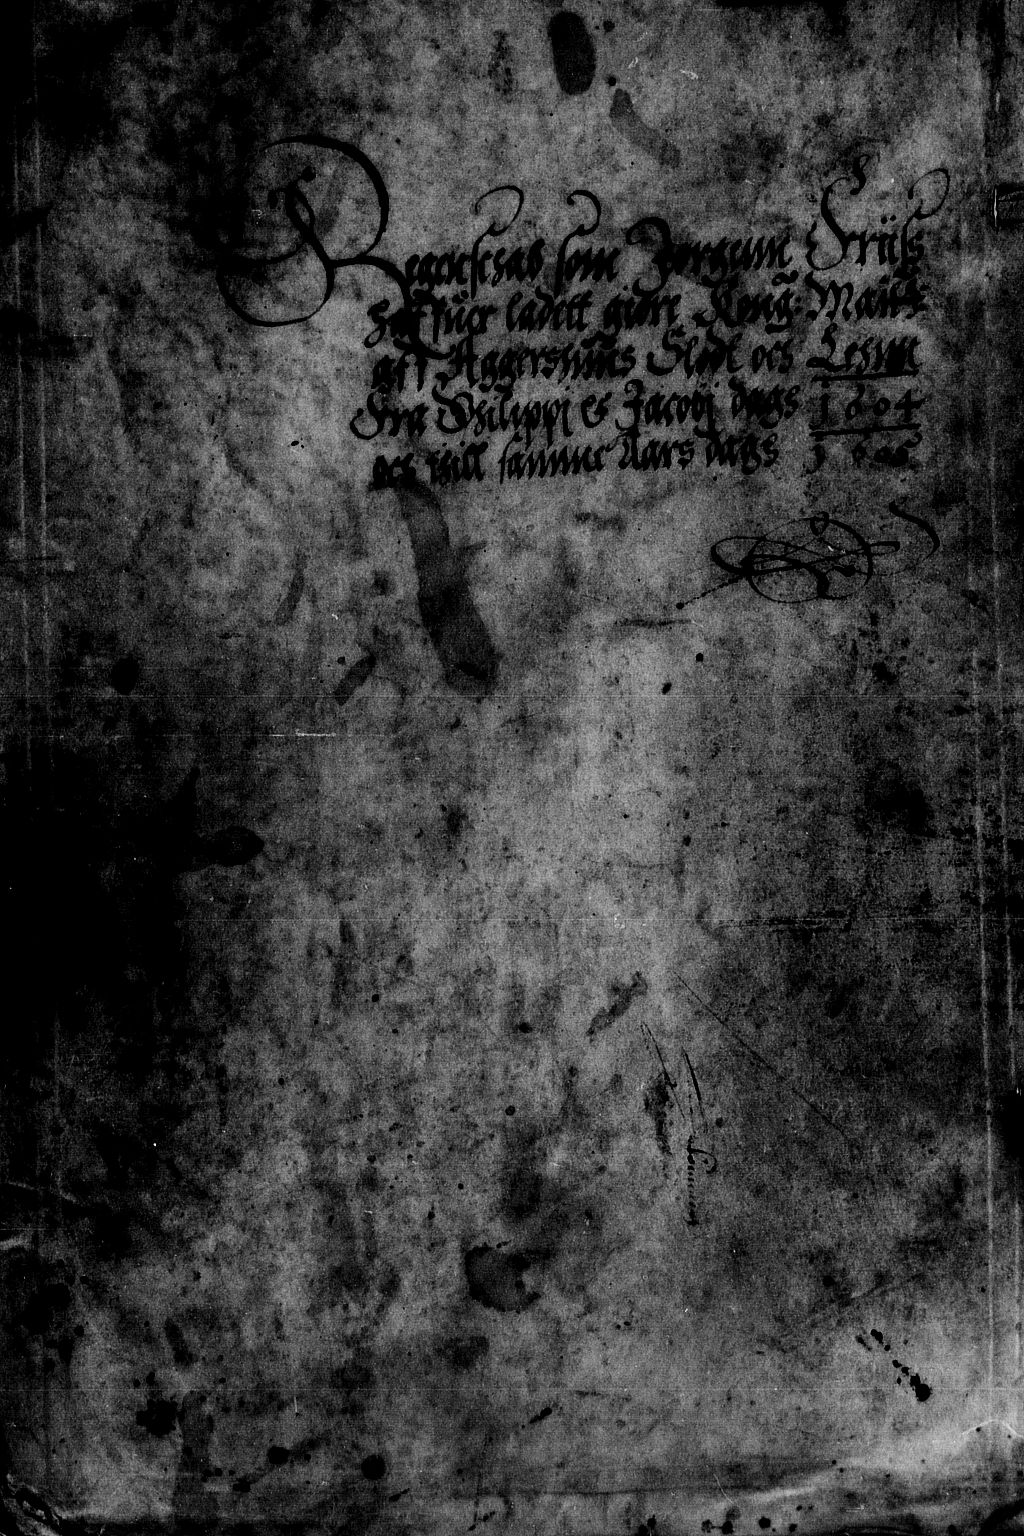 Regenschab som Jörgenn Friiss
Haffuer ladett giöre Kong: Maÿtz
aff Aggershuus Slodt och Lehnn
Fra Philippi et Jacobj dags 1604
och thill samme Aars dags 1605